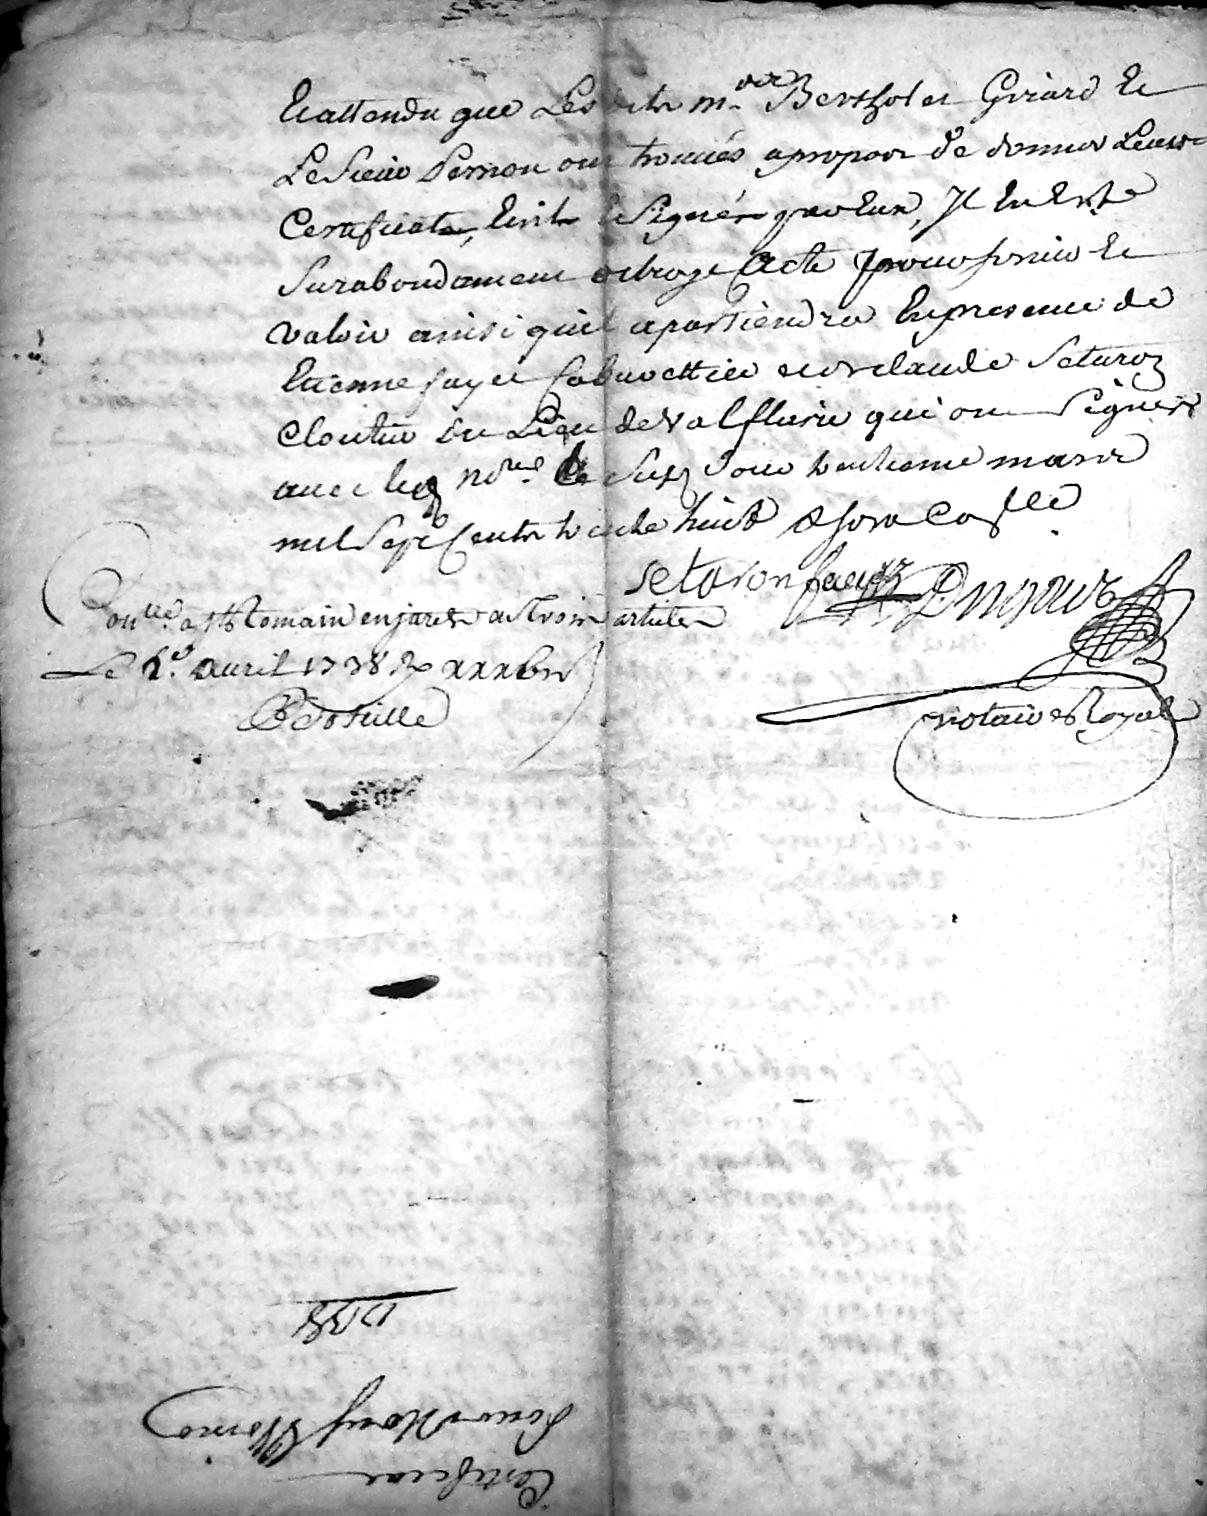 Et attendu que Les dits mrs Berthol et Girard Et
Le Sieur Pernon ont trouvés apropos de donner Leurs
Certificats, Ecrits & Signés par Eux, Il En Este
Surabondament octroye Acte pour servir Et
valoir ainsi quil apartiendra En presence de
Etienne faye Cabarettier et Claude Setaron
Cloutier du Lieu de valfleurie qui ont Signés
avec le no.re Le Susd Jour trentieme mars
mil Sept Cents trente huit
setaron faye Dujour
Con.llé a St Romain en jarets as trois articles
Le 2.e avril 1738
notaire Royal
1738
Pour
Certificat